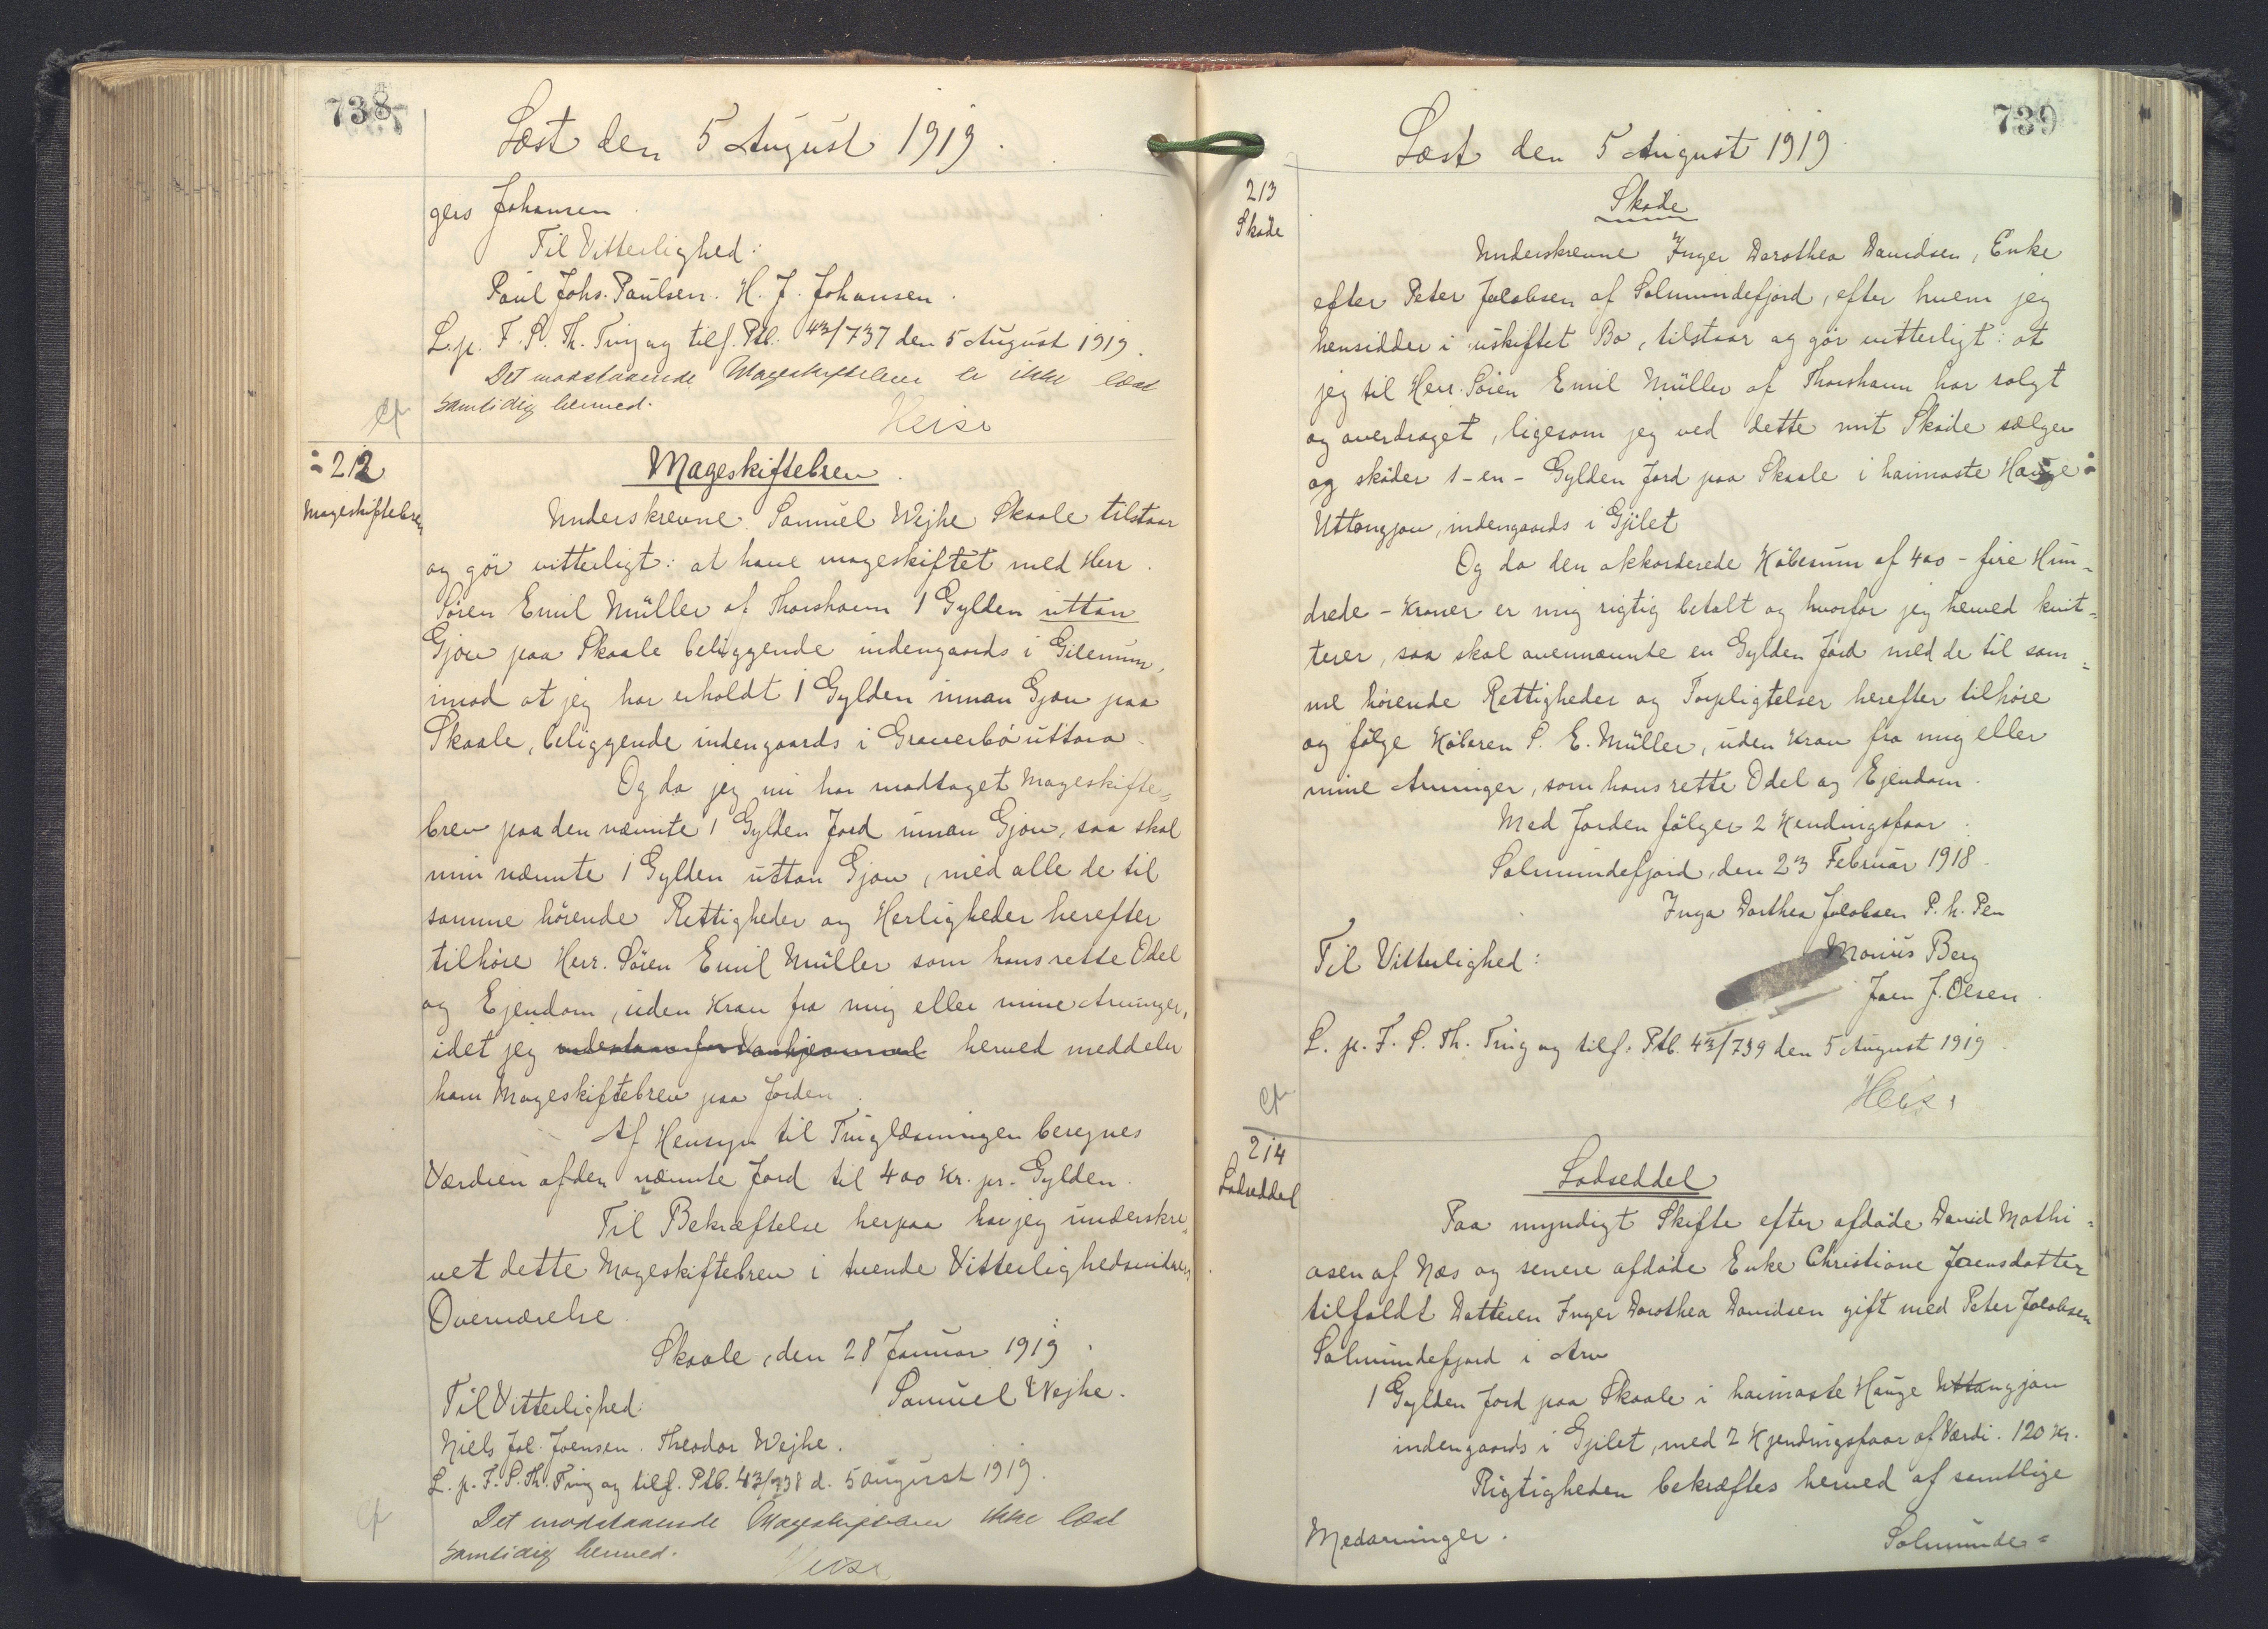 738
Læst den 5 August 1919.
gers Johansen
Til Vitterlighed:
Paul Johs. Paulsen. H. J. Johansen.
L. p. F. S. Th. Ting og tilf. Ptb. 43/737 den 5 August 1919.
Det modstaaende Mageskiftebrev er ikke læst
samtidig hermed.
Heise
212
Mageskiftebrev
Mageskiftebrev.
Underskrevne Samuel Wejhe Skaale tilstaar
og gör vitterligt: at have mageskiftet med Herr.
Sören Emil Müller af Thorshavn 1 Gylden uttan
Gjow paa Skaale beliggende indengaards i Gilenum,
imod at jeg har erholdt 1 Gylden innan Gjow paa
Skaale, beliggende indengaards i Graverbö uttara.
Og da jeg nu har modtaget Mageskifte=
brev paa den nævnte 1 Gylden Jord innan Gjow, saa skal
min nævnte 1 Gylden uttan Gjow, med alle de til
samme hörende Rettigheder og Herligheder herefter
tilhöre Herr. Sören Emil Müller som hans rette Odel
og Ejendom, uden Krav fra mig eller mine Arvinger,
idet jeg herved meddeler
ham Mageskiftebrev paa Jorden.
Af Hensyn til Tinglæsningen beregnes
Værdien af den nævnte Jord til 400 Kr. pr. Gylden.
Til Bekræftelse herpaa har jeg underskre=
vet dette Mageskiftebrev i tvende Vitterlighedsvidners
Overværelse.
Skaale, den 28 Januar 1919.
Til Vitterlighed: Samuel Wejhe.
Niels Jal. Joensen. Theodor Wejhe.
L. p. F. S. Th. Ting og tilf. Ptb. 43/738 d. 5 august 1919.
Det modstaaende Mageskiftebrev ikke læst
samtidig hermed.
Heise
739
Læst den 5 August 1919
213
Sköde
Sköde
Underskrevne Inger Dorothea Davidsen, Enke
efter Peter Jacobsen af Solmundefjord, efter hvem jeg
hensidder i uskiftet Bo, tilstaar og gör vitterligt: at
jeg til Herr. Sören Emil Müller af Thorshavn har solgt
og overdraget, ligesom jeg ved dette mit Sköde sælger
og sköder 1 - en - Gylden Jord paa Skaale i haimaste Hauge
Uttangjow, indengaards i Gjilet
Og da den akkorderede Köbesum af 400 - fire Hun=
drede - Kroner er mig rigtig betalt og hvorfor jeg herved kvit=
terer, saa skal ovennævnte en Gylden Jord med de til sam=
me hörende Rettigheder og Forpligtelser herefter tilhöre
og fölge Köberen S. E. Müller, uden Krav fra mig eller
mine Arvinger, som hans rette Odel og Ejendom.
Med Jorden fölger 2 Kendingsfaar.
Solmundefjord, den 23 Februar 1918.
Inga Dorthea Jacobsen P. h. Pen
Til Vitterlighed: Monius Berg
Joen J. Olsen.
L. p. F. S. Th. Ting og tilf. Ptb. 43/739 den 5 August 1919.
Heise
214
Lodseddel
Lodseddel
Paa myndigt Skifte efter afdöde David Mathi=
asen af Næs og senere afdöde Enke Christiane Joensdatter
tilfaldt Datteren Inger Dorothea Davidsen gift med Peter Jacobsen
Solmundefjord i Arv
1 Gylden Jord paa Skaale i haimaste Hauge Uttangjow
indengaards i Gjilet, med 2 Kjendingsfaar af Værdi. 120 Kr.
Rigtigheden bekræftes herved af samtlige
Medarvinger.
Solmunde=